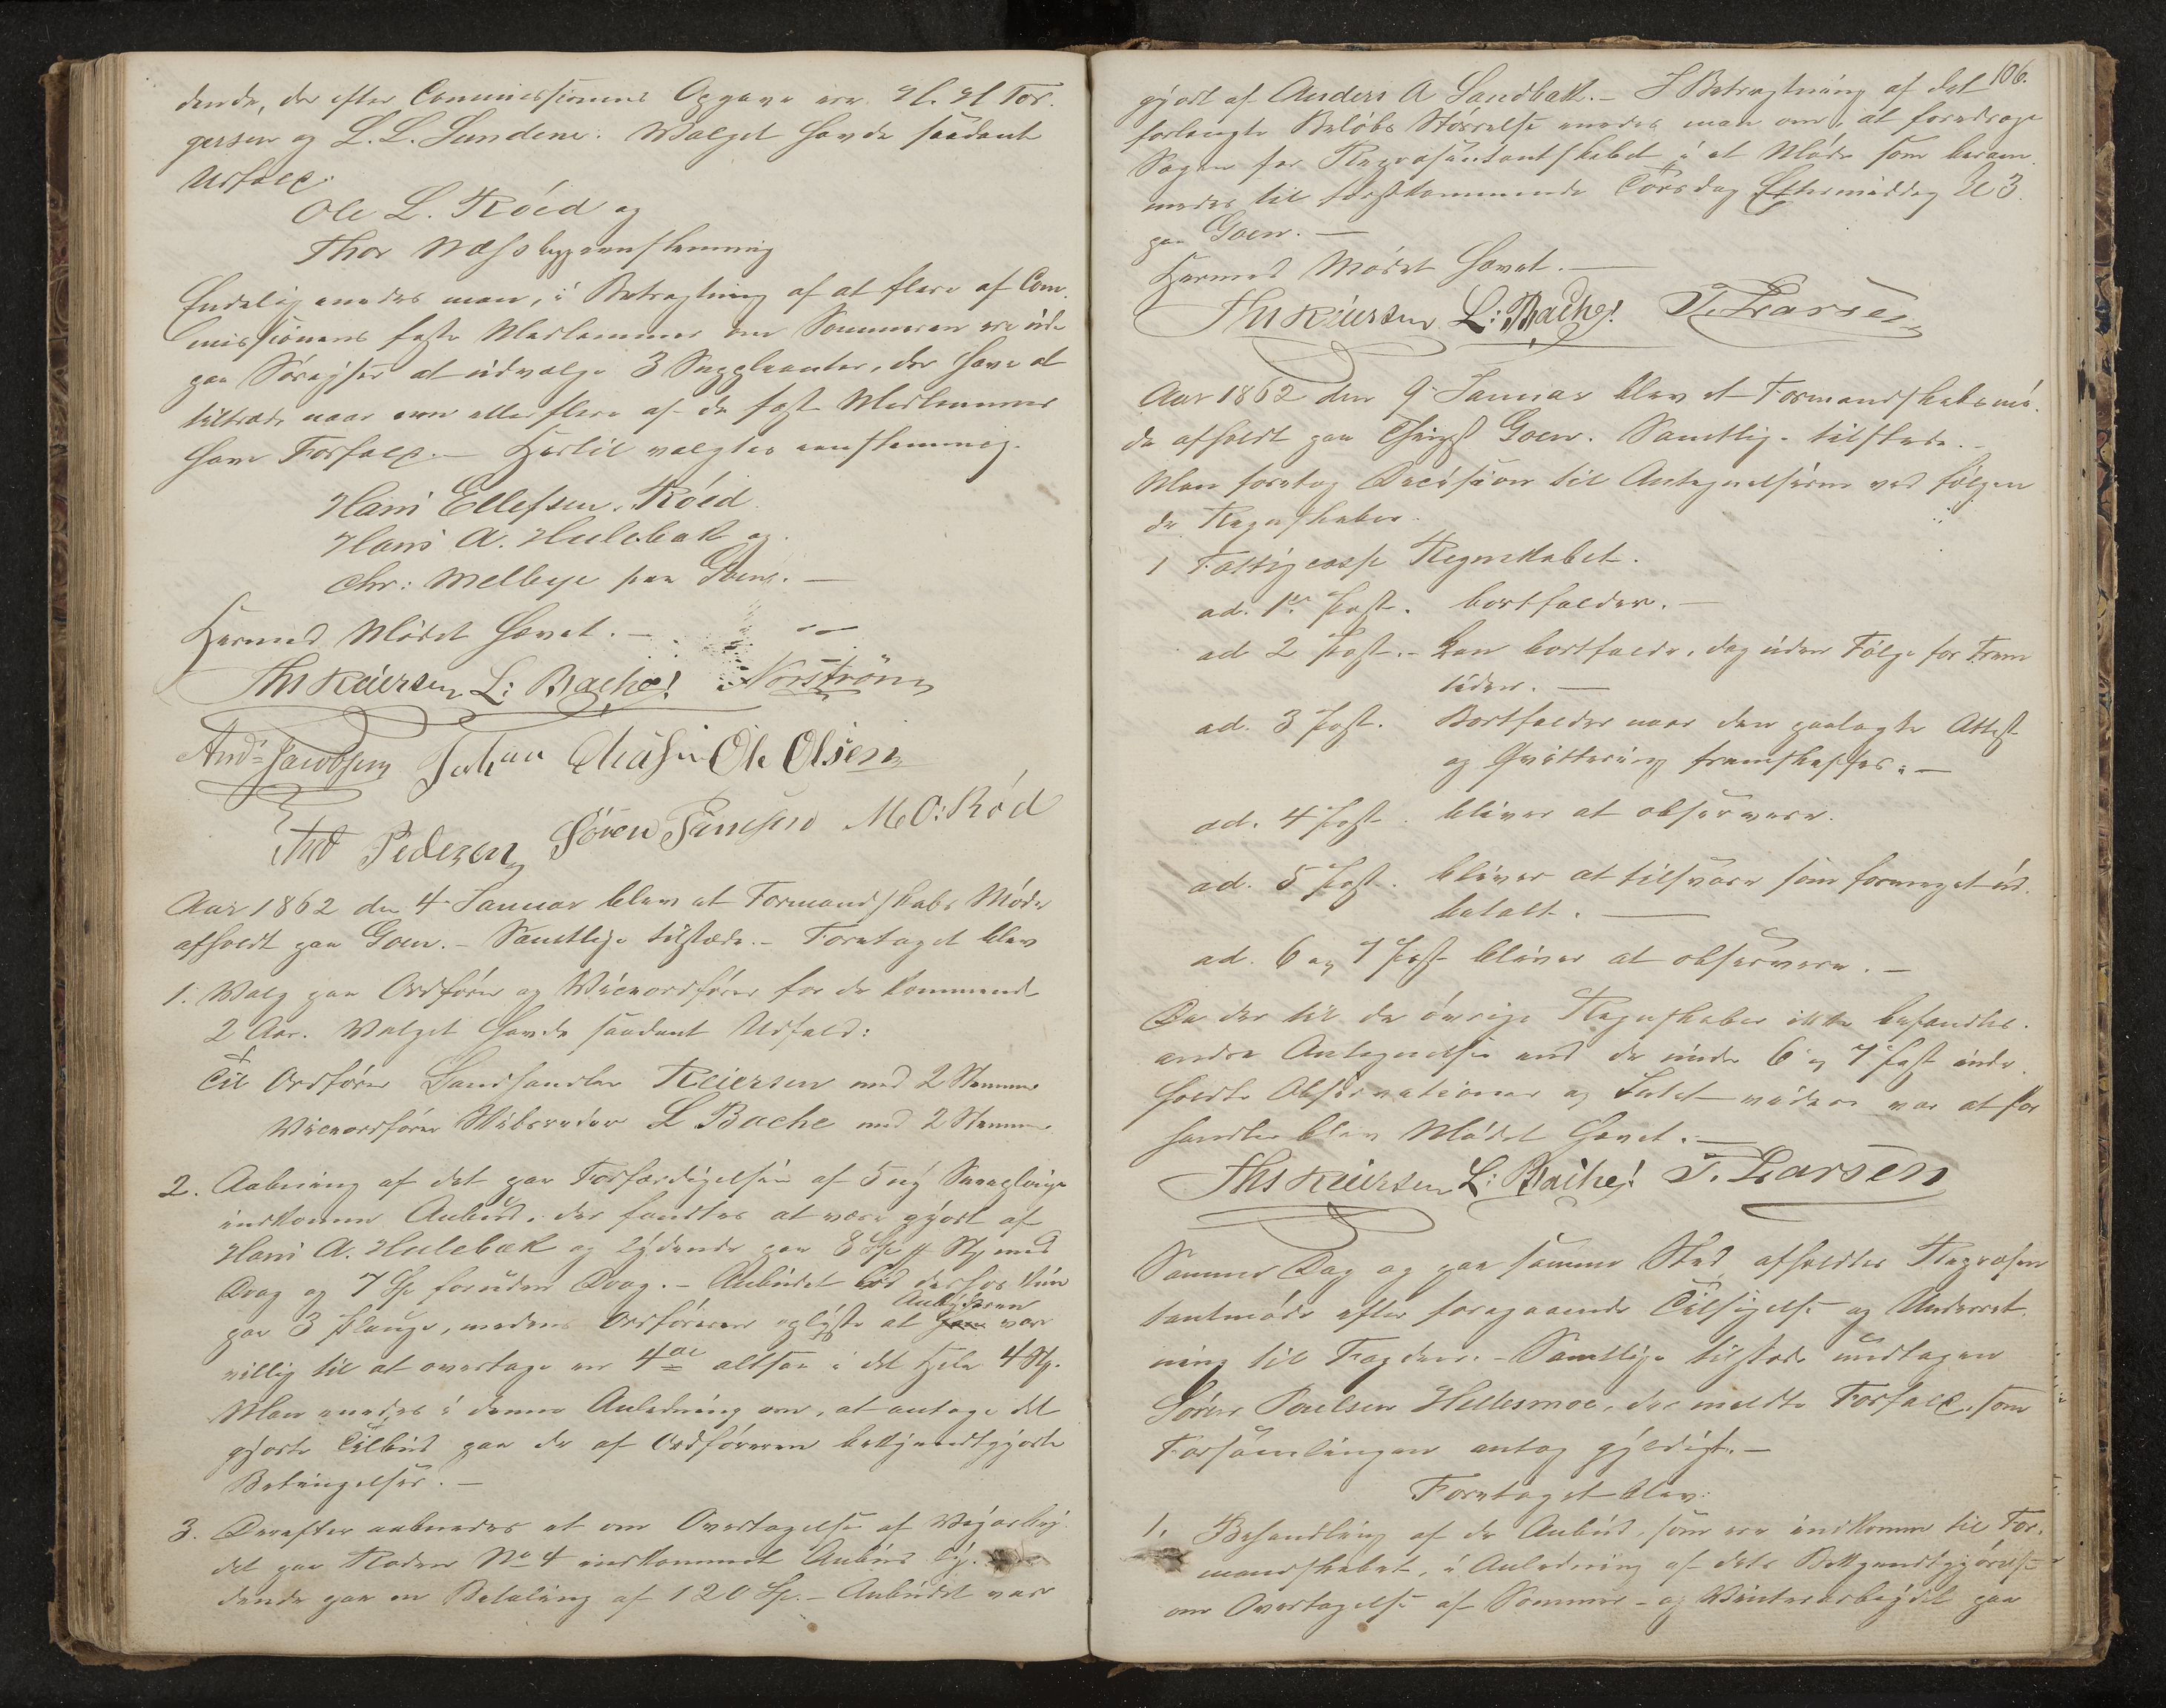 dende, der efter Commissionens Opgave ere H. H Tor-
gersen og L. L. Sundene. Valget havde saadant
Udfald:
Ole L. Röed og
Thor Næs begge eenstemmig
Endelig enedes man, i Betragtning af at flere af Com-
missionens faste Medlemmer om Sommeren ere ude
paa Söreiser at udvælge 3 Suppleanter, der have at
tiltræde naar een eller flere af de fast Medlemmer
have Forfald. – Hertil valgtes eenstemmig.
Hans Ellefsen Röed
Hans A. Hulebak og
Chr: Melbye paa Goen. –
Hermed Mödet hævet. –
Ths Reiersen L: Bache! Norström
Ands Jacobsen Johan Ole Olsen
And Pedersen Sören Jensen M. O: Röd
Aar 1862 den 4 Januar blev et Formandskabs Möde
afholdt paa Goen. – Samtlige tilstæde. – Foretaget blev
1. Valg paa Ordförer og Viceordförer for de kommende
2 Aar. Valget havde saadant Udfald:
Til Ordförer Landhandler Reiersen med 2 Stemmer
Viceordförer Skibsreder L Bache med 2 Stemmer
2. Aabning af det paa Forfærdigelsen af 5 ny Sneeplouge
indkomne Anbud, der fandtes at være gjort af
Hans A. Hulebæk og lydende paa 8 Sp pr Stk med
Drag og 7 Sp foruden Drag. – Anbudet löd derhos kun
Anbyderen
paa 3 Plouge, medens Ordföreren oplyste at han var
villig til at overtage en 4de altsaa i det Hele 4 Stk.
Man enedes i denne Anledning om, at antage det
gjorte Tilbud paa de af Ordföreren bekjendtgjorte
Betingelser. –
3. Derefter aabnedes et om Overtagelse af Veiarbei-
det paa Roden No 4 indkommet Anbud ly-
dende paa en Betaling af 120 Sp. – Anbudet var
106.
gjort af Anders A Sandbak. – I Betragtning af det
forlangte Belöbs Störrelse enedes man om, at foredrage
Sagen for Repræsentantskabet i et Möde som beram-
medes til förstkommende Torsdag Eftermiddag Kl 3
paa Goen. –
Hermed Mödet hævet. –
Ths Reiersen L: Bache! T. Larsen
Aar 1862 den 9 Januar blev et Formandskabsmö-
de afholdt paa Goen. Samtlige tilstede. –
Man foretog Decision til Antegnelserne ved fölgen
de Regnskaber.
1 Fattigcasse Regnskabet.
ad. 1ste Post. bortfalder. –
ad 2 Post. – kan bortfalde, dog uden Fölge for Frem
tiden. –
ad. 3 Post. Bortfalder naar den paalagte Attest
og Qvittering fremskaffes. –
ad. 4 Post. bliver at observere.
ad. 5 Post. bliver at tilsvare som formeget ud-
betalt. –
ad. 6 og 7 Post bliver at observere. –
Da der til de övrige Regnskaber ikke befandtes
andre Antegnelser end de under 6 og 7 Post inde-
holdte Observationer og Intet videre var at for
handle blev Mödet hævet. –
Ths Reiersen L: Bache! T. Larsen
Samme Dag og paa samme Sted afholdtes Repræsen
tantmöde efter foregaaende Tilsigelse og Underret-
ning til Fogden. – Samtlige tilstede undtagen
Sören Poulsen Hellesmoe, der meldte Forfald, som
Forsamlingen antog gyldigt. –
Foretaget blev:
1. Behandling af de Anbud, som ere indkomne til For-
mandskabet, i Anledning af dets Bekjendtgjörelse
om Overtagelse af Sommer- og Vinterarbeidet paa